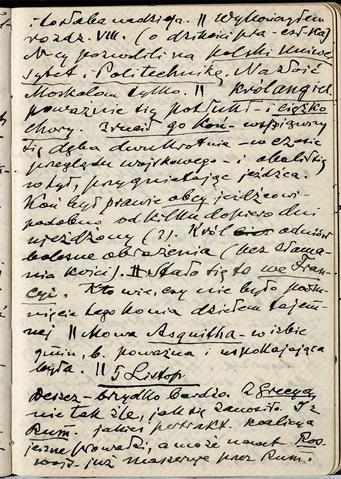 i to słaba nadzieja. || Wykończyłem
rozdz. VIII. (o dzikości pra-
N-cy pozwolili na polski Uniwer
sytet i Politechnikę. Na złość
Moskalom tylko. || Król angiel.
poważnie się potłukł – i ciężko
chory. Zrzucił go koń – wspiąwszy
się dęba dwukrotnie – w czasie
przeglądu wojskowego – i obalił się
w tył, przygniatając jeźdźca.
Koń był prawie obcy jeźdźcowi –
podobno od kilku dopiero dni
ujeżdżony (?). Król odniósł
bolesne obrażenia (bez złama-
nia kości). || Stało się to we Fran-
cyi. Kto wie, czy nie było podsu-
nięcie tego konia dziełem tajem-
nej || Mowa Asquitha – w izbie
gmin, b. poważna i uspokajająca
była. || 5 Listop.
Deszcz – brzydko bardzo. Z Grecyą
nie tak źle, jak się zanosiło. I z
Rum. jakieś pertrakt. koalicya
jeszcze prowadzi, a może nawet Ros
wojs. już maszeruje przez Rum.